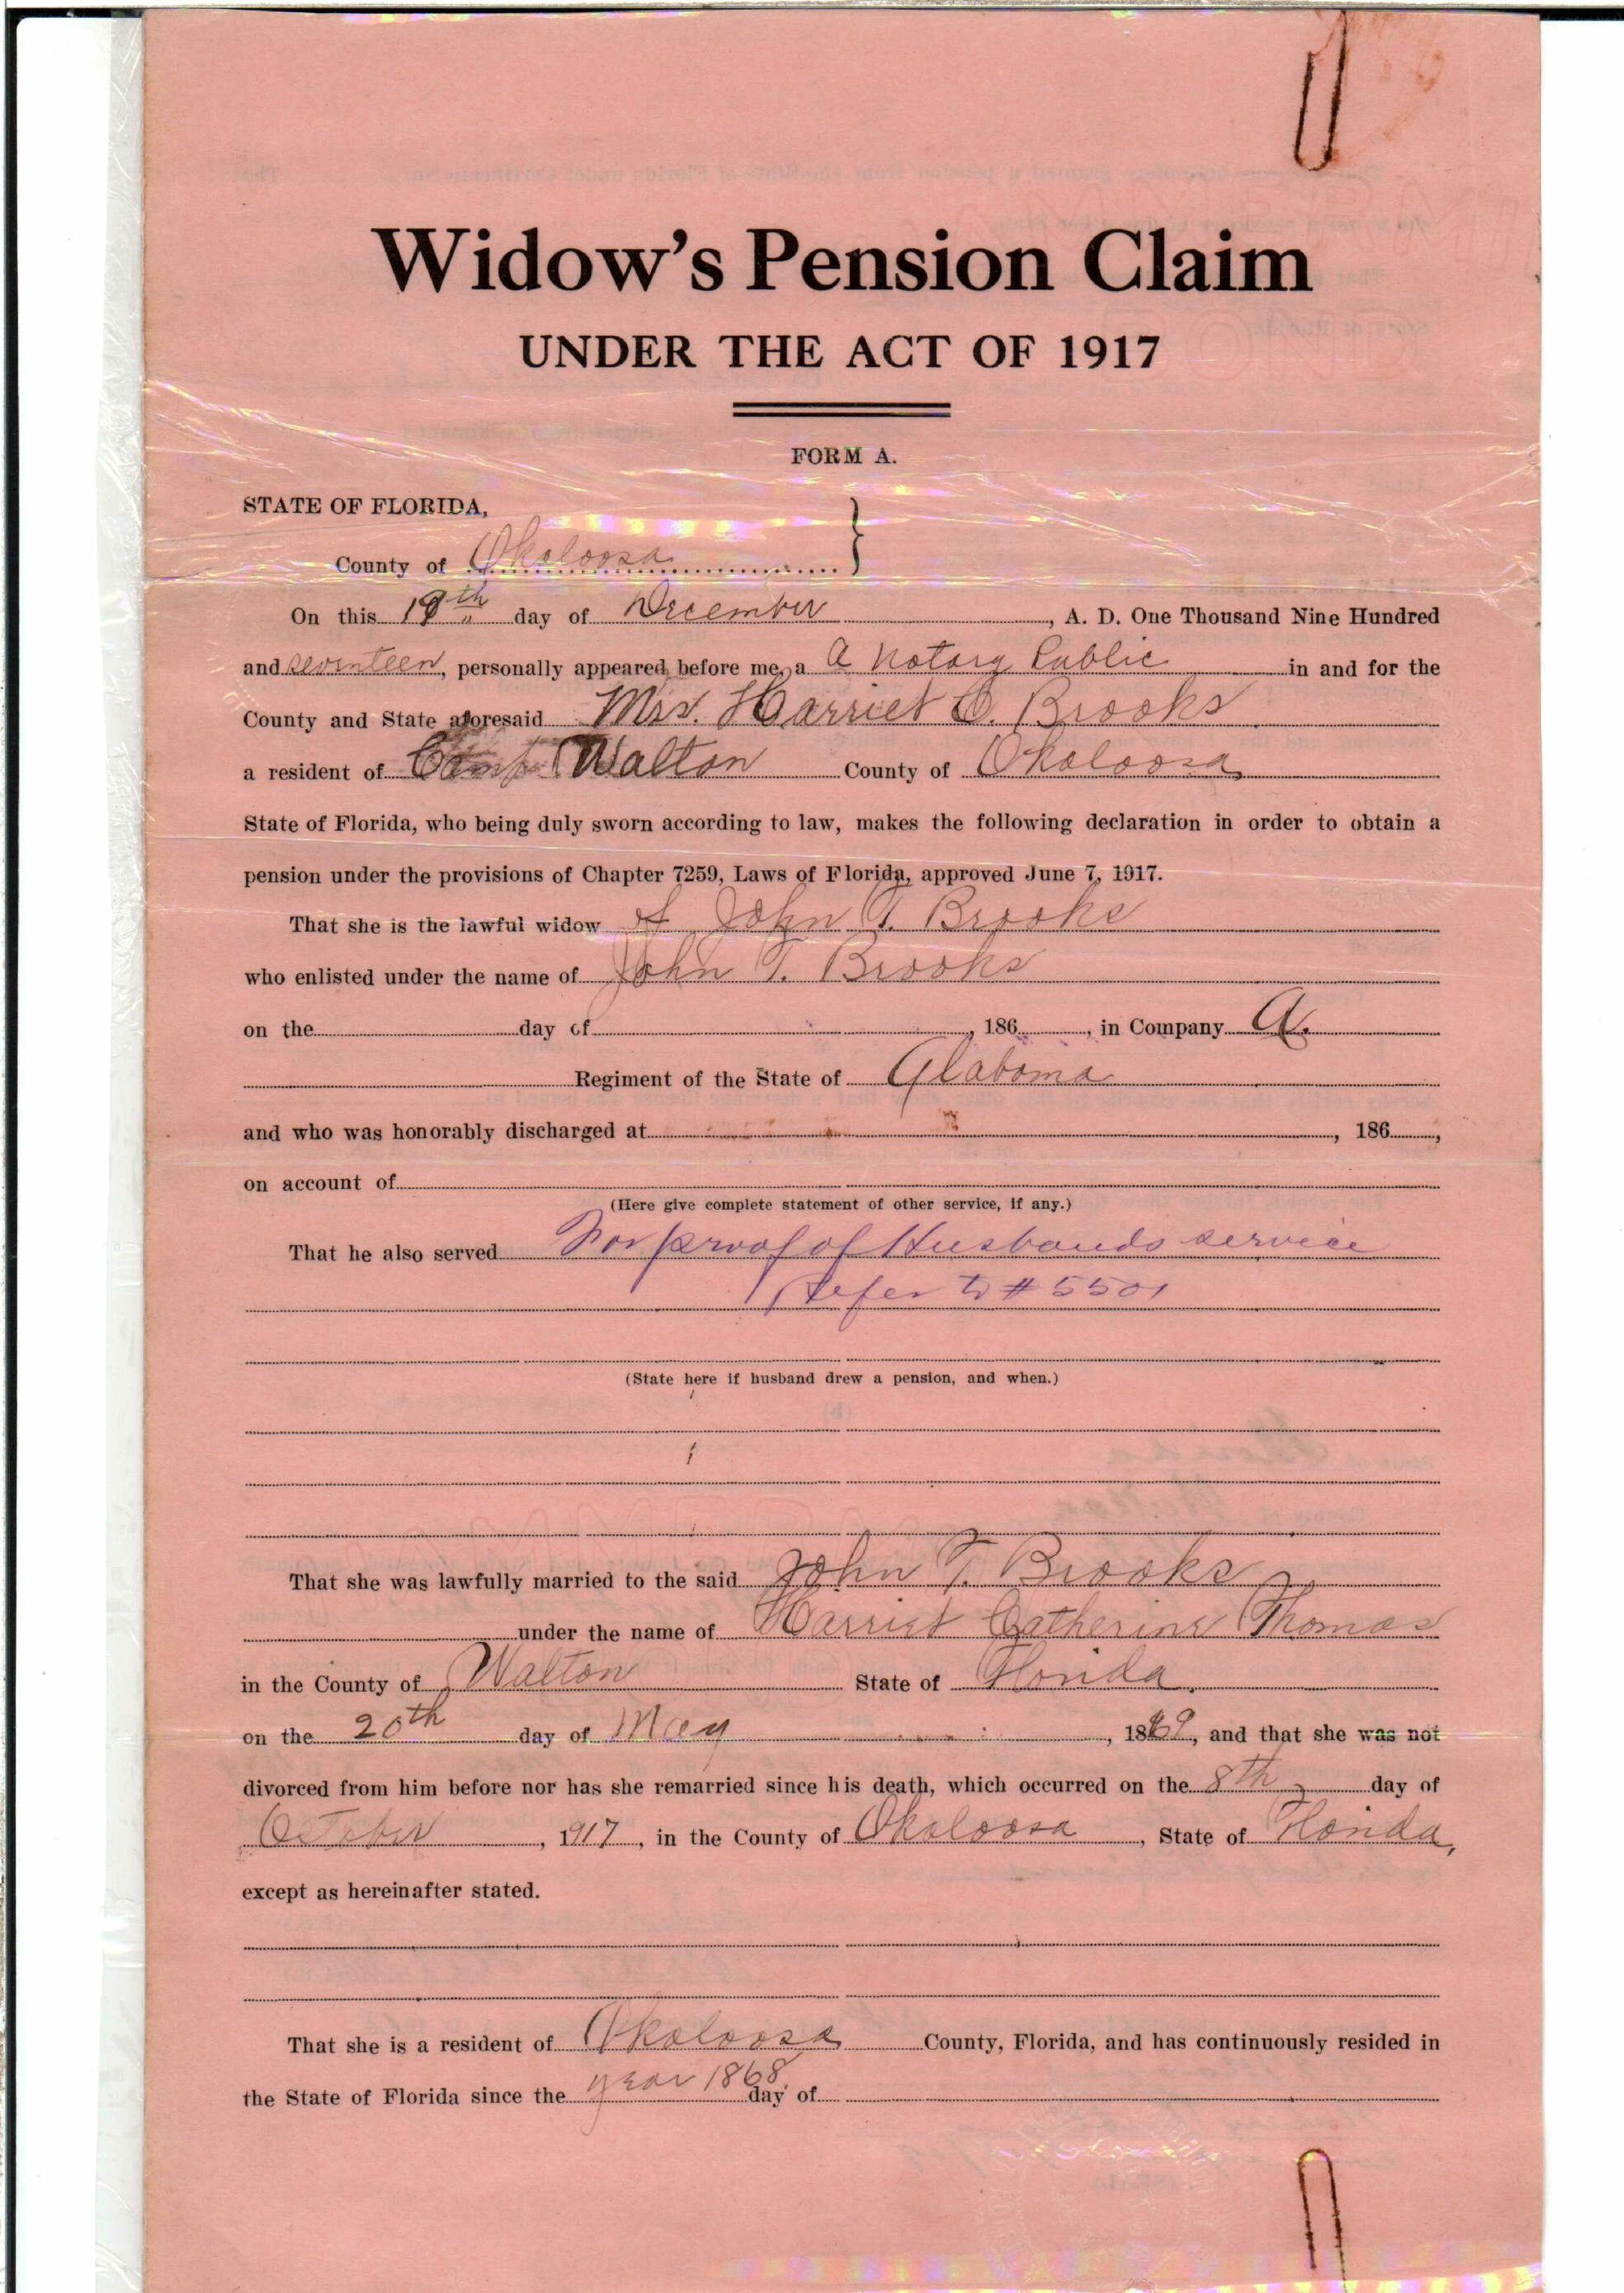 Widow's Pension Claim
UNDER THE ACT OF 1917
FORM A.
STATE OF FLORIDA,
County of Okaloosa }
On this 18th day of December, A. D. One Thousand Nine Hundred
and seventeen, personally appeared before me, a A Notary Public in and for the
County and State aforesaid Mrs. Harriet C. Brooks
a resident of Camp Walton County of Okaloosa
State of Florida, who being duly sworn according to law, makes the following declaration in order to obtain a
pension under the provisions of Chapter 7259, Laws of Florida, approved June 7, 1917.
That she is the lawful widow of John T. Brooks
who enlisted under the name of John T. Brooks
on the day of , 186 , in Company A.
Regiment of the State of Alabama
and who was honorably discharged at , 186 ,
on account of
(Here give complete statement of other service, if any.)
That he also served For proof of Husbands service
Refer to # 5501
(State here if husband drew a pension, and when.)
That she was lawfully married to the said John T. Brooks
under the name of Harriet Catherine Thomas
in the County of Walton State of Florida.
on the 20th day of May , 1869, and that she was not
divorced from him before nor has she remarried since his death, which occurred on the 8th day of
October , 1917 , in the County of Okaloosa , State of Florida,
except as hereinafter stated.
That she is a resident of Okaloosa County, Florida, and has continuously resided in
the State of Florida since the year 1868. day of